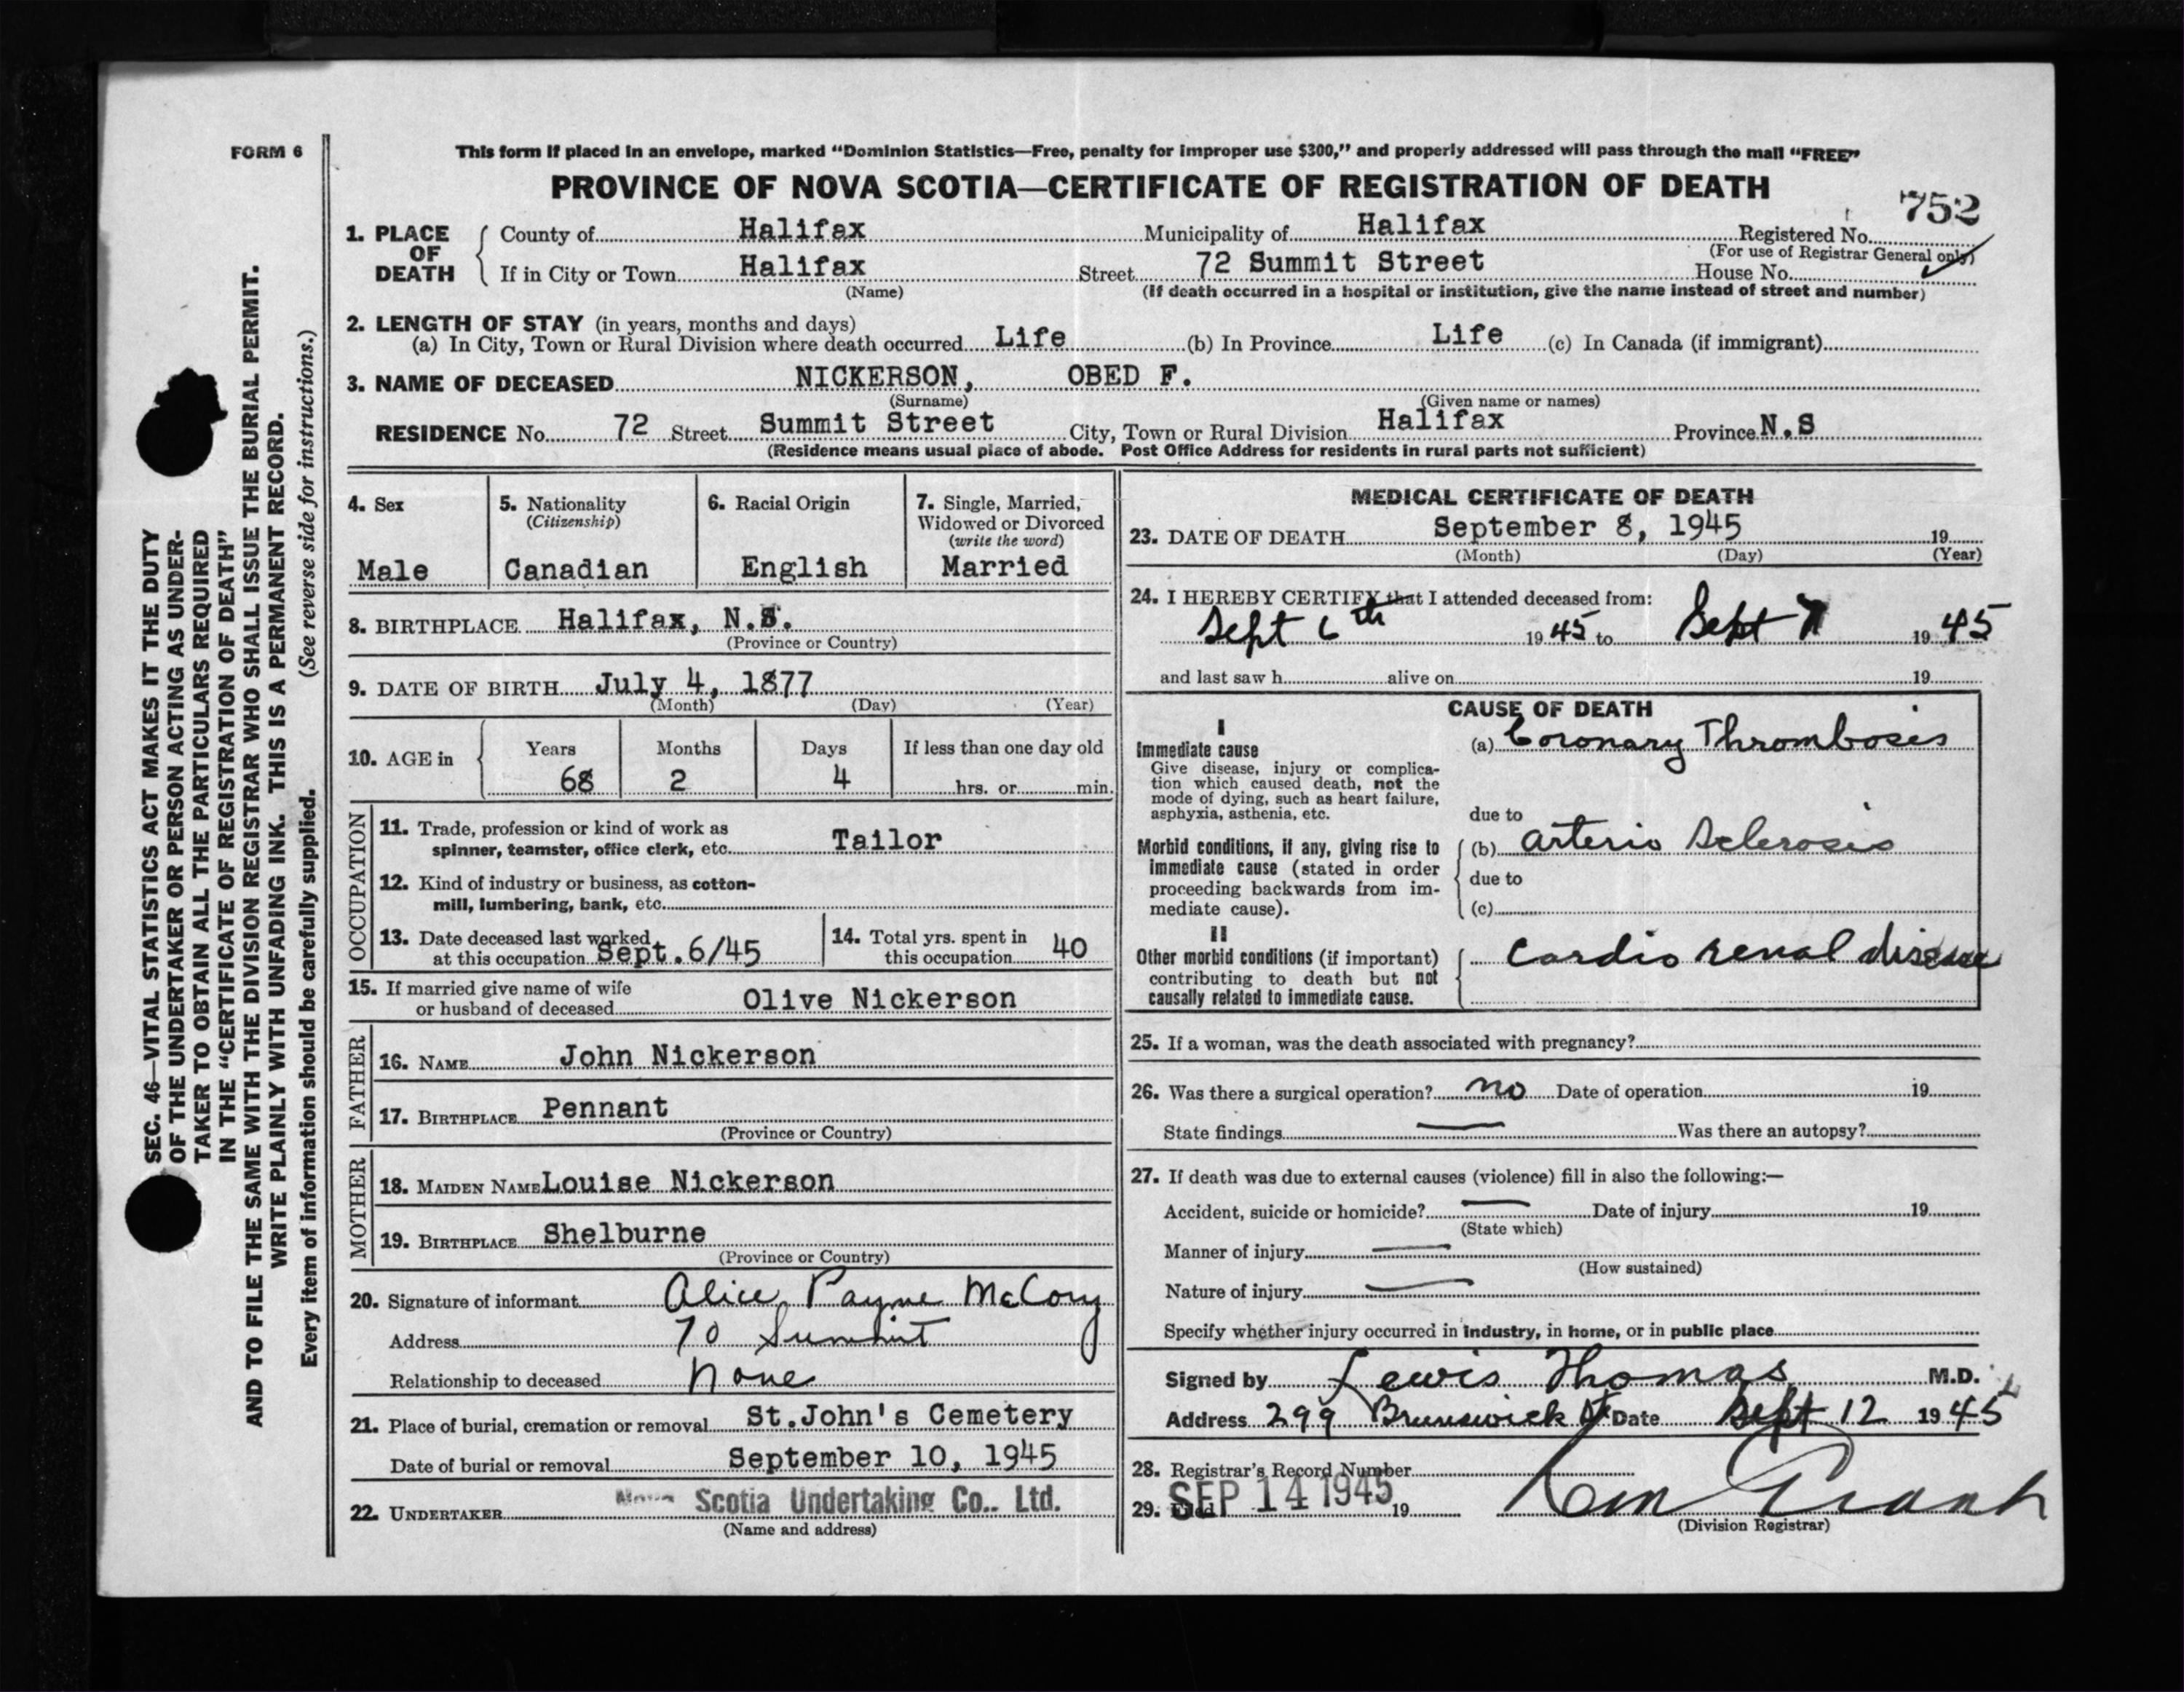 FORM 6
This form if placed in an envelope, marked “Dominion Statistics—Free, penalty for improper use $300,” and properly addressed will pass through the mail “FREE”
PROVINCE OF NOVA SCOTIA—CERTIFICATE OF REGISTRATION OF DEATH
752
1. PLACE OF DEATH
County of Halifax Municipality of Halifax Registered No.
(For use of Registrar General only)
If in City or Town Halifax Street 72 Summit Street House No.
(Name) (If death occurred in a hospital or institution, give the name instead of street and number)
2. LENGTH OF STAY (in years, months and days)
(a) In City, Town or Rural Division where death occurred Life (b) In Province Life (c) In Canada (if immigrant)
3. NAME OF DECEASED NICKERSON, OBED F.
(Surname) (Given name or names)
RESIDENCE No. 72 Street Summit Street City, Town or Rural Division Halifax Province N.S
(Residence means usual place of abode. Post Office Address for residents in rural parts not sufficient)
4. Sex
Male
5. Nationality
(Citizenship)
Canadian
6. Racial Origin
English
7. Single, Married,
Widowed or Divorced
(write the word)
Married
8. BIRTHPLACE Halifax, N.S.
(Province or Country)
9. DATE OF BIRTH July 4, 1877
(Month) (Day) (Year)
10. AGE in
Years Months Days If less than one day old
68 2 4 hrs. or min.
OCCUPATION
11. Trade, profession or kind of work as
spinner, teamster, office clerk, etc. Tailor
12. Kind of industry or business, as cotton-
mill, lumbering, bank, etc.
13. Date deceased last worked
at this occupation Sept. 6/45
14. Total yrs. spent in
this occupation 40
15. If married give name of wife
or husband of deceased Olive Nickerson
FATHER
16. NAME John Nickerson
17. BIRTHPLACE Pennant
(Province or Country)
MOTHER
18. MAIDEN NAME Louise Nickerson
19. BIRTHPLACE Shelburne
(Province or Country)
20. Signature of informant Alice Payne McCory
Address 70 Summit
Relationship to deceased None
21. Place of burial, cremation or removal St.John's Cemetery
Date of burial or removal September 10, 1945
22. UNDERTAKER Nova Scotia Undertaking Co.. Ltd.
(Name and address)
MEDICAL CERTIFICATE OF DEATH
23. DATE OF DEATH September 8, 1945 19
(Month) (Day) (Year)
24. I HEREBY CERTIFY that I attended deceased from:
Sept 6th 1945 to Sept 7 1945
and last saw h alive on 19
CAUSE OF DEATH
I
Immediate cause
Give disease, injury or complica-
tion which caused death, not the
mode of dying, such as heart failure,
asphyxia, asthenia, etc.
(a) Coronary Thrombosis
due to
Morbid conditions, if any, giving rise to
immediate cause (stated in order
proceeding backwards from im-
mediate cause).
(b) Arterio Sclerosis
due to
(c)
II
Other morbid conditions (if important)
contributing to death but not
causally related to immediate cause.
Cardio renal disease
25. If a woman, was the death associated with pregnancy?
26. Was there a surgical operation? no Date of operation 19
State findings — Was there an autopsy?
27. If death was due to external causes (violence) fill in also the following:—
Accident, suicide or homicide? — Date of injury 19
(State which)
Manner of injury —
(How sustained)
Nature of injury —
Specify whether injury occurred in industry, in home, or in public place
Signed by Lewis Thomas M.D.
Address 299 Brunswick St Date Sept 12 1945
28. Registrar's Record Number
29. Filed SEP 14 1945 19
(Division Registrar)
SEC. 46—VITAL STATISTICS ACT MAKES IT THE DUTY
OF THE UNDERTAKER OR PERSON ACTING AS UNDER-
TAKER TO OBTAIN ALL THE PARTICULARS REQUIRED
IN THE “CERTIFICATE OF REGISTRATION OF DEATH”
AND TO FILE THE SAME WITH THE DIVISION REGISTRAR WHO SHALL ISSUE THE BURIAL PERMIT.
WRITE PLAINLY WITH UNFADING INK. THIS IS A PERMANENT RECORD.
Every item of information should be carefully supplied. (See reverse side for instructions.)